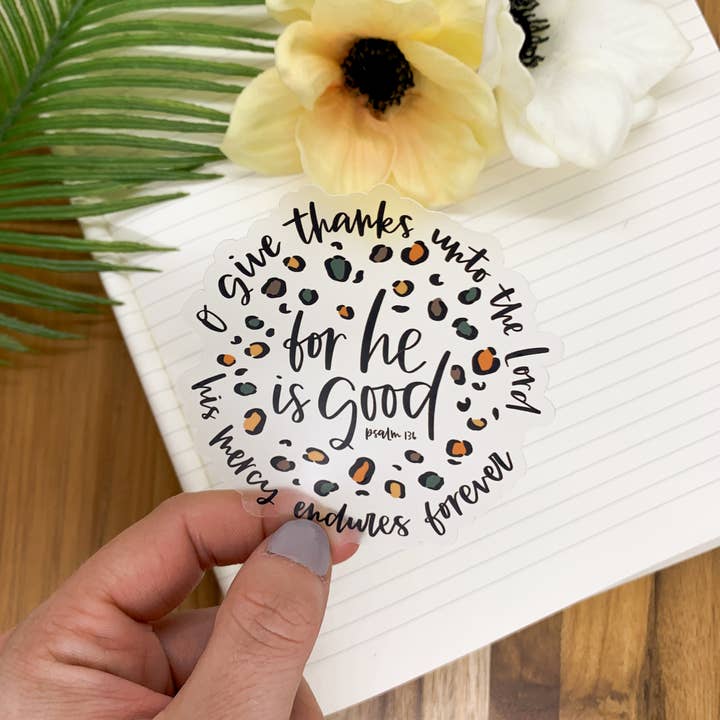 O give thanks unto the Lord
for he
is good
psalm 136
his mercy endures forever